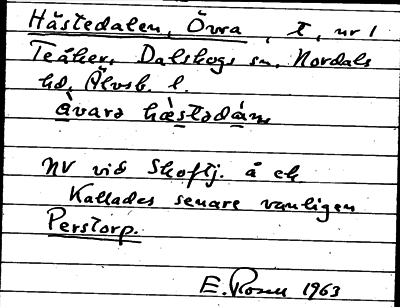 Hästedalen, Övra, t, nr 1
Teåker, Dalskogs sn, Nordals
hd, Älvsb. l.
à̱varə hæ̀stədá̱n,
NV vid Skoftj. å ek
Kallades senare vanligen
Perstorp.
E. Rosen 1963